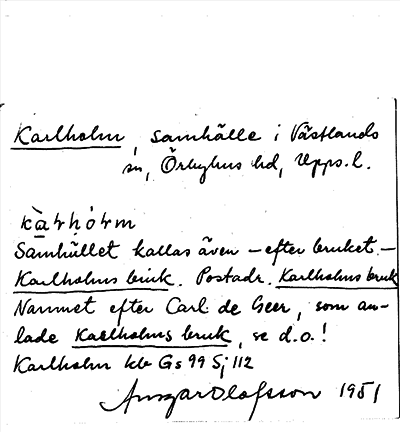 Karlholm, samhälle i Västlands
sn, Örbyhus hd, Upps. l.
kà̱ɽḥóɽm
Samhället kallas även – efter bruket. –
Karlholms bruk. Postadr. Karlholms bruk
Namnet efter Carl de Geer, som an-
lade Karlholms bruk, se d.o.!
Karlholm kb Gs 99 Sj 112
Ansgar Olafsson 1951